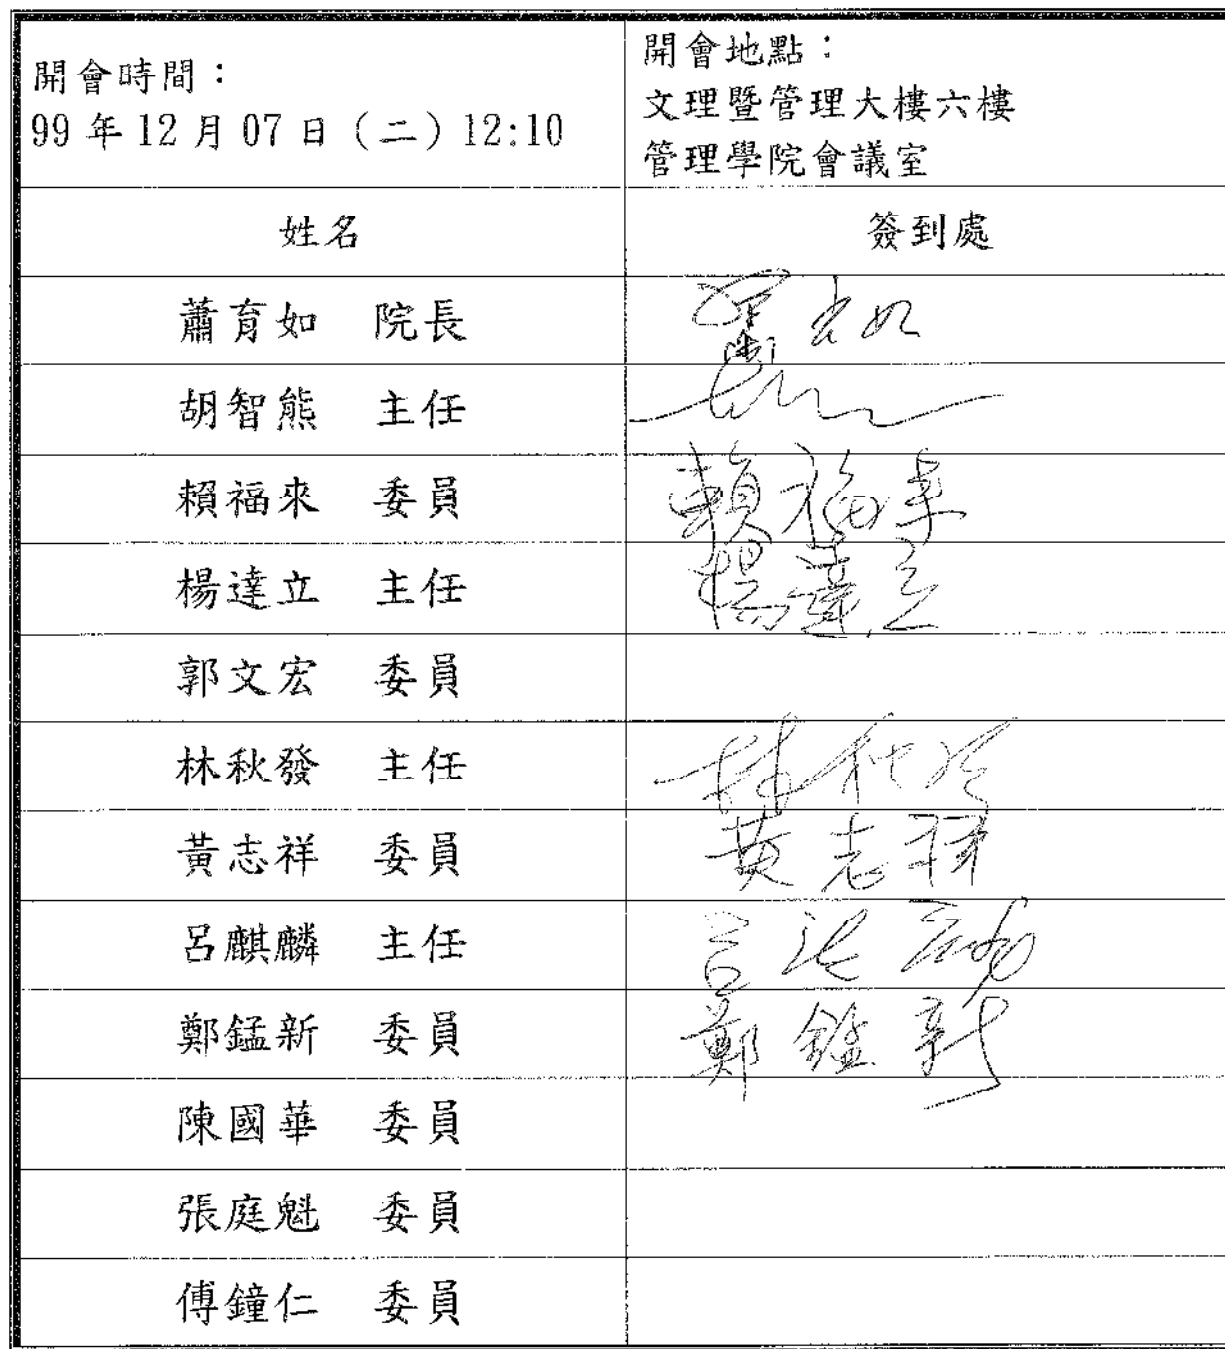 開會時間：
99 年 12 月 07 日（二）12:10
開會地點：
文理暨管理大樓六樓
管理學院會議室
姓名 簽到處
蕭育如 院長
胡智熊 主任
賴福來 委員 賴福來
楊達立 主任 楊達立
郭文宏 委員
林秋發 主任
黃志祥 委員 黃志祥
呂麒麟 主任
鄭錳新 委員 鄭錳新
陳國華 委員
張庭魁 委員
傅鐘仁 委員